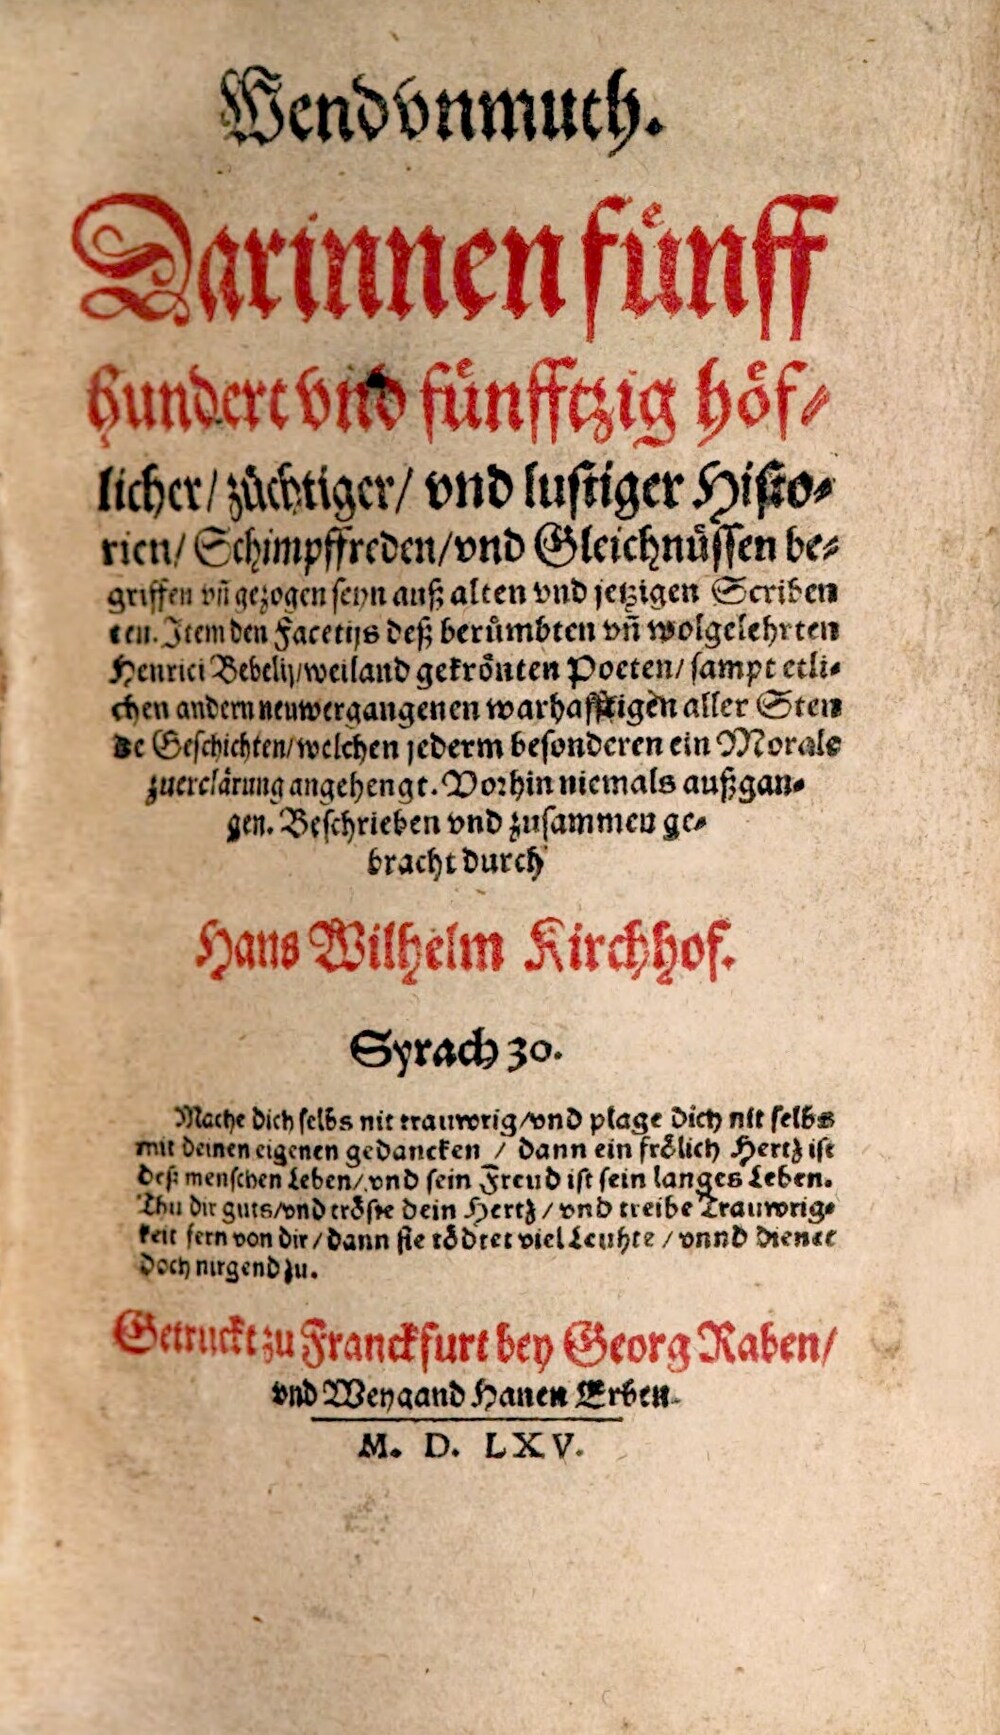 Wendvnmuth.
Darinnen fuͤnff
hundert vnd fuͤnfftzig hoͤf⸗
licher/ zuͤchtiger/ vnd lustiger Histo⸗
rien/ Schimpffreden/vnd Gleichnuͤssen be⸗
griffen vñ gezogen seyn auß alten vnd jetzigen Scriben
ten. Item den Facetijs deß beruͤmbten vñ wolgelehrten
Henrici Bebelij/weiland gekroͤnten Poeten/ sampt etli⸗
chen andern neuwergangenen warhafftigen aller Sten
de Geschichten/welchen jederm besonderen ein Morale
zuerclaͤrung angehengt. Vorhin niemals außgan⸗
gen. Beschrieben vnd zusammen ge⸗
bracht durch
Hans Wilhelm Kirchhof.
Syrach 30.
Mache dich selbs nit trauwrig/vnd plage dich nit selbs
mit deinen eigenen gedancken / dann ein froͤlich Hertz ist
deß menschen Leben/vnd sein Freud ist sein langes Leben.
Thu dir guts/vnd troͤste dein Hertz/ vnd treibe Trauwrig⸗
keit fern von dir/ dann sie toͤdtet viel Leuhte / vnnd dienet
doch nirgend zu.
Getruckt zu Franckfurt bey Georg Raben/
vnd Weygand Hanen Erben.
M. D. LXV.